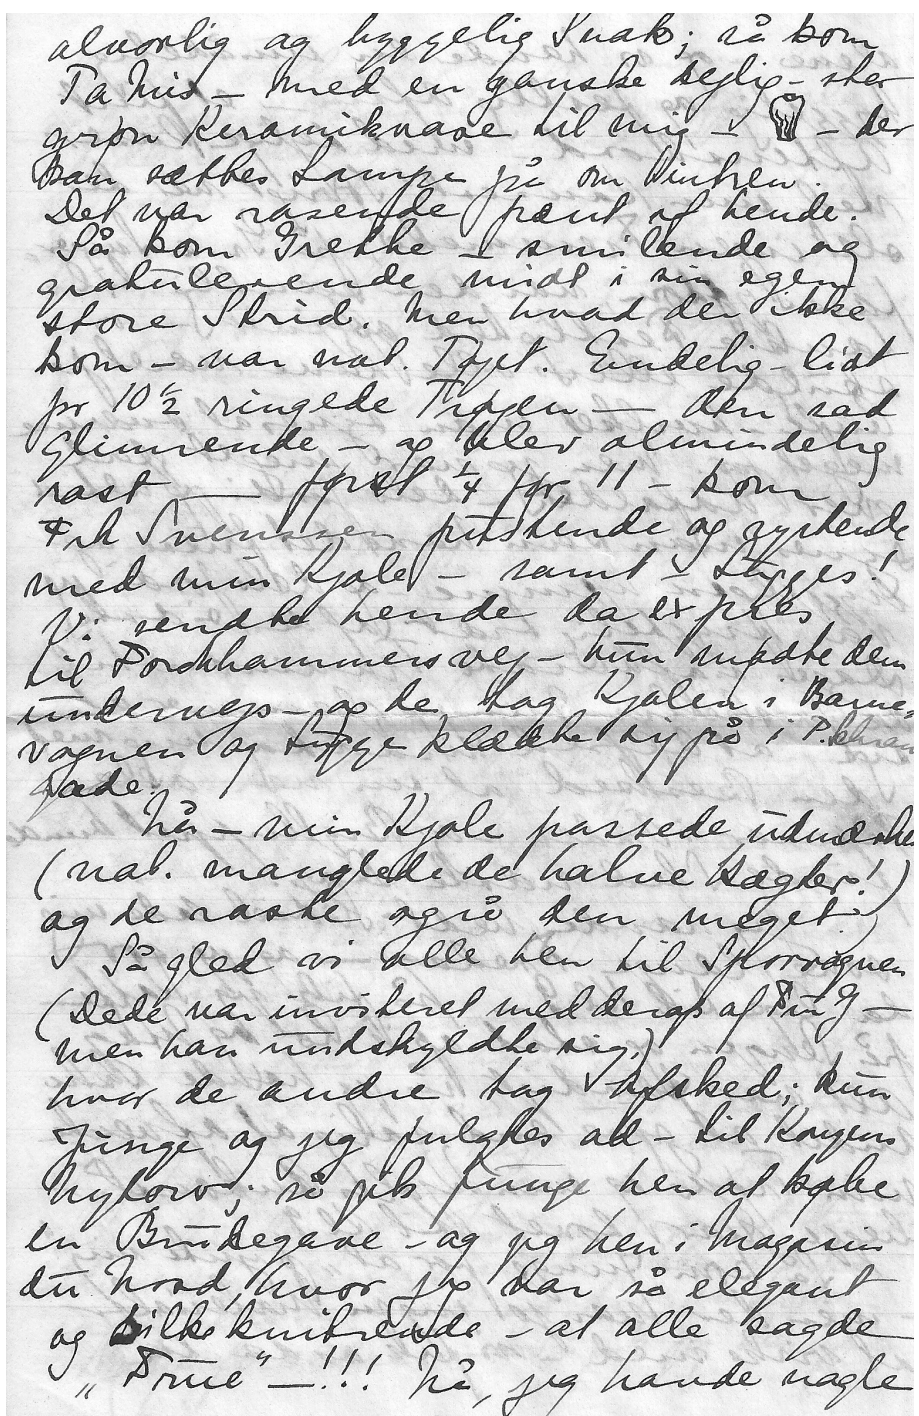 alvorlig og hyggelig Snak; så kom
Ta Mis – med en ganske dejlig – stor
grøn Keramikvase til mig – – der
kan sættes Lampe på om Vintren.
Det var rasende pænt af hende.
Så kom Grethe – smilende og
gratulerende midt i sin egen
store Strid. Men hvad der ikke
kom – var nat. Tøjet. Endelig – lidt
før 10 1/2 ringede Trøjen – den sad
glimrende – og blev almindelig
rost – først 1/4 før 11 – kom
Frk Svenssen pustende og rystende
med min Kjole – samt – Lugges!
Vi sendte hende da expres
til Forchhammersvej – hun mødte dem
undervejs – og de tog Kjolen i Barne-
vognen og Lugge klædte sig på i
gade.
Nå – min Kjole passede udmærket
(nat. manglede de halve Hægter!)
og de roste også den meget.
Så gled vi alle hen til Sporvognen
(Dede var inviteret med derop af Fru G –
men han undskyldte sig.)
hvor de andre tog Afsked; kun
Junge og jeg fulgtes ad – til Kongens
Nytorv; så gik Junge hen at købe
en Brudegave – og jeg hen i Magasin
du Nord, hvor jeg var så elegant
og silkeknitrende – at alle sagde
"Frue" – !!! Nå, jeg havde nogle